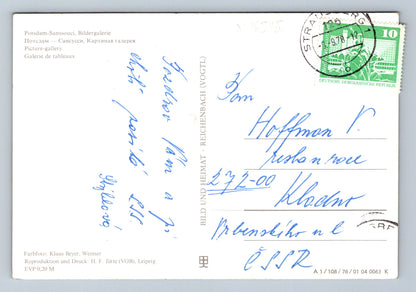 Potsdam-Sanssouci, Bildergalerie
Потсдам — Сансуси, Картинная галерея
Picture-gallery
Galerie de tableaux
Srdečně Vám a
STRAUSBERG 1
9.78
10
DEUTSCHE DEMOKRATISCHE REPUBLIK
Pan
Hoffman V.
restaurace
272-00
Kladno
Vrbenského ul
ČSSR
BILD UND HEIMAT REICHENBACH (VOGTL)
Farbfoto: Klaus Beyer, Weimar
Reproduktion und Druck: H. F. Jütte (VOB), Leipzig
EVP 0,20 M
A 1/108/76/01 04 0063 K